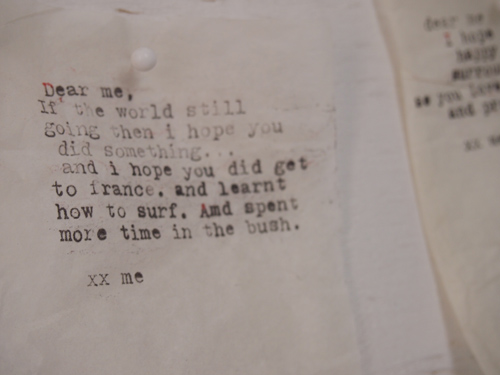 Dear me,
If the world still
going then i hope you
did something...
and i hope you did get
to irance. and learnt
how to surf. Amd spent
more time in the bush.
xx me
dear me
i hope
happy
as you
and
xx